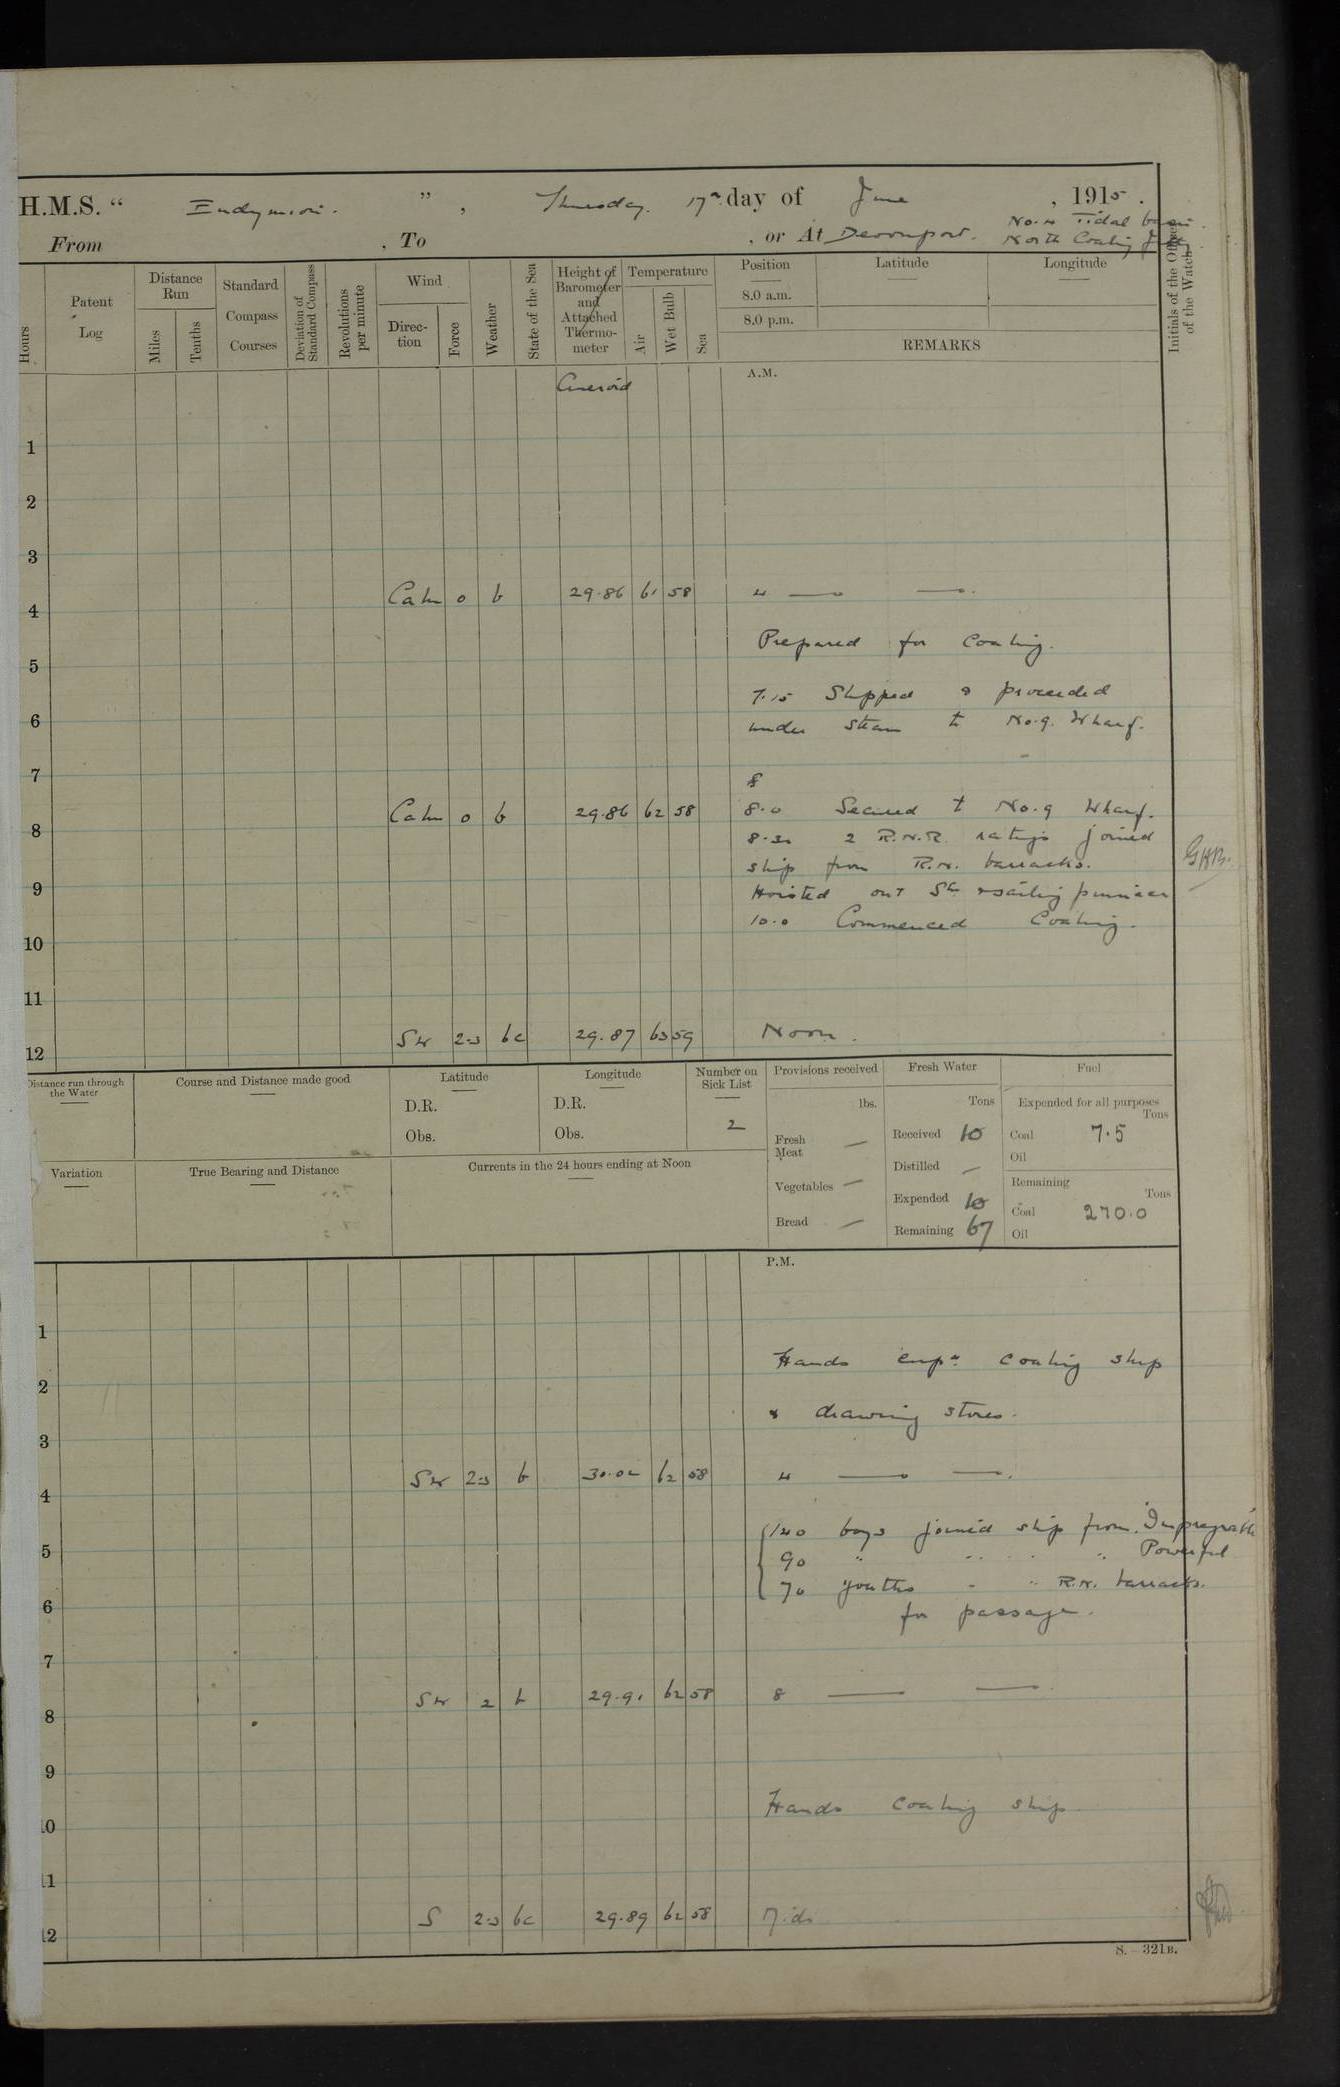 H.M.S. “ Endymion. ” , Thursday. 17th day of June , 1915 .
No. 4 Tidal basin.
From , To , or At Devonport. North Coaling
Hours
Patent Log
Distance Run
Miles
Tenths
Standard Compass Courses
Deviation of Standard Compass
Revolutions per minute
Wind
Direction
Force
Weather
State of the Sea
Height of Barometer and Attached Thermometer
Temperature
Air
Wet Bulb
Sea
Position
8.0 a.m.
8.0 p.m.
Latitude
Longitude
REMARKS
Initials of the Officer of the Watch
Aneroid
A.M.
1
2
3
4 Calm 0 b 29.86 61 58 4 — —.
Prepared for Coaling.
5
7.15 Slipped & proceeded
6 under steam to No.9. Wharf.
7
8
8 Calm 0 b 29.86 62 58 8.0 Secured to No.9 Wharf.
8.30 2 R.N.R. ratings joined
ship from R.N. barracks.
9 Hoisted out Sm & sailing pinnace
10.0 Commenced Coaling.
10
11
12 SW 2-3 bc 29.87 63 59 Noon.
Distance run through the Water
Course and Distance made good
Latitude
D.R.
Obs.
Longitude
D.R.
Obs.
Number on Sick List
2
Provisions received
lbs.
Fresh Meat —
Vegetables —
Bread —
Fresh Water
Tons
Received 10
Distilled —
Expended 10
Remaining 67
Fuel
Expended for all purposes
Tons
Coal 7.5
Oil
Remaining
Tons
Coal 270.0
Oil
Variation
True Bearing and Distance
Currents in the 24 hours ending at Noon
P.M.
1
Hands empd coaling ship
2
& drawing stores.
3
4 SW 2-3 b 30.02 62 58 4 — —.
140 boys joined ship from "Impregnable
5 90 " " " " Powerful
70 youths " " R.N. barracks.
6 for passage.
7
8 SW 2 b 29.91 62 58 8 — —.
9
Hands coaling ship
10
11
12 S 2-3 bc 29.89 62 58 Mid.
S.—321B.